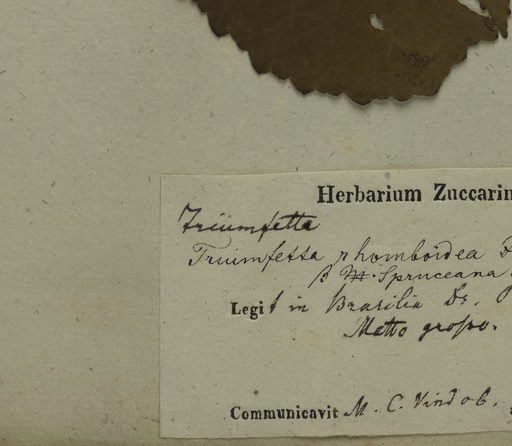 Herbarium Zuccarin
Triumfetta
Triumfetta rhomboidea
β M. Spruceana
Legit in Brasilia Dr.
Matto grosso.
Communicavit M. C. Vindob.